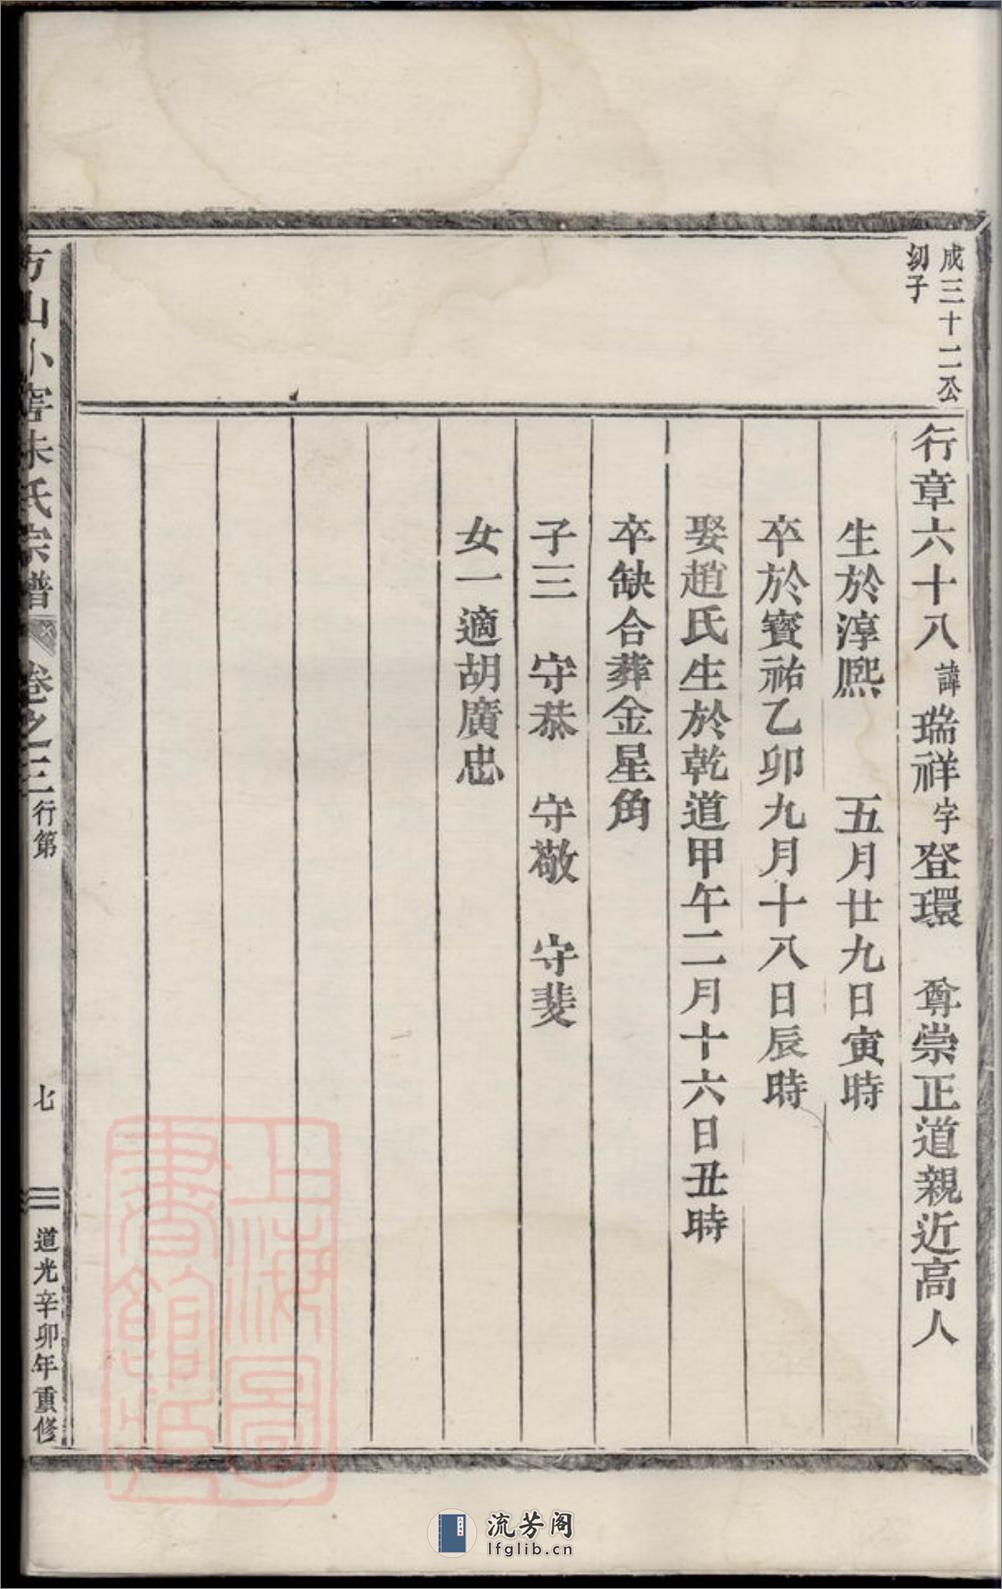 成三十二公
幼子
行章六十八 諱瑞祥字登環 尊崇正道親近高人
生於淳熙 五月廿九日寅時
卒於寶祐乙卯九月十八日辰時
娶趙氏生於乾道甲午二月十六日丑時
卒缺合葬金星角
子三 守恭 守敬 守斐
女一適胡廣忠
方山小窖朱氏宗譜 卷之三 行第 七 道光辛卯年重修
上海圖
書館藏
流芳阁
lfglib.cn